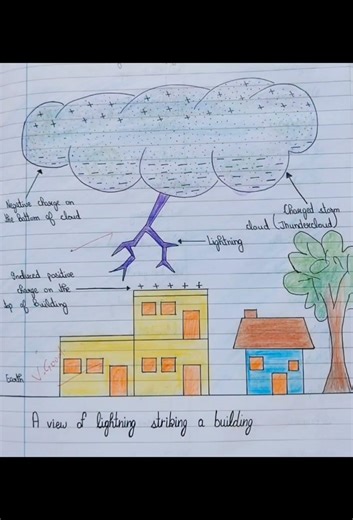 Negative charge on
the bottom of cloud
Charged storm
cloud (Thundercloud)
Lightning
Induced positive
charge on the
top of building
Earth
A view of lightning striking a building